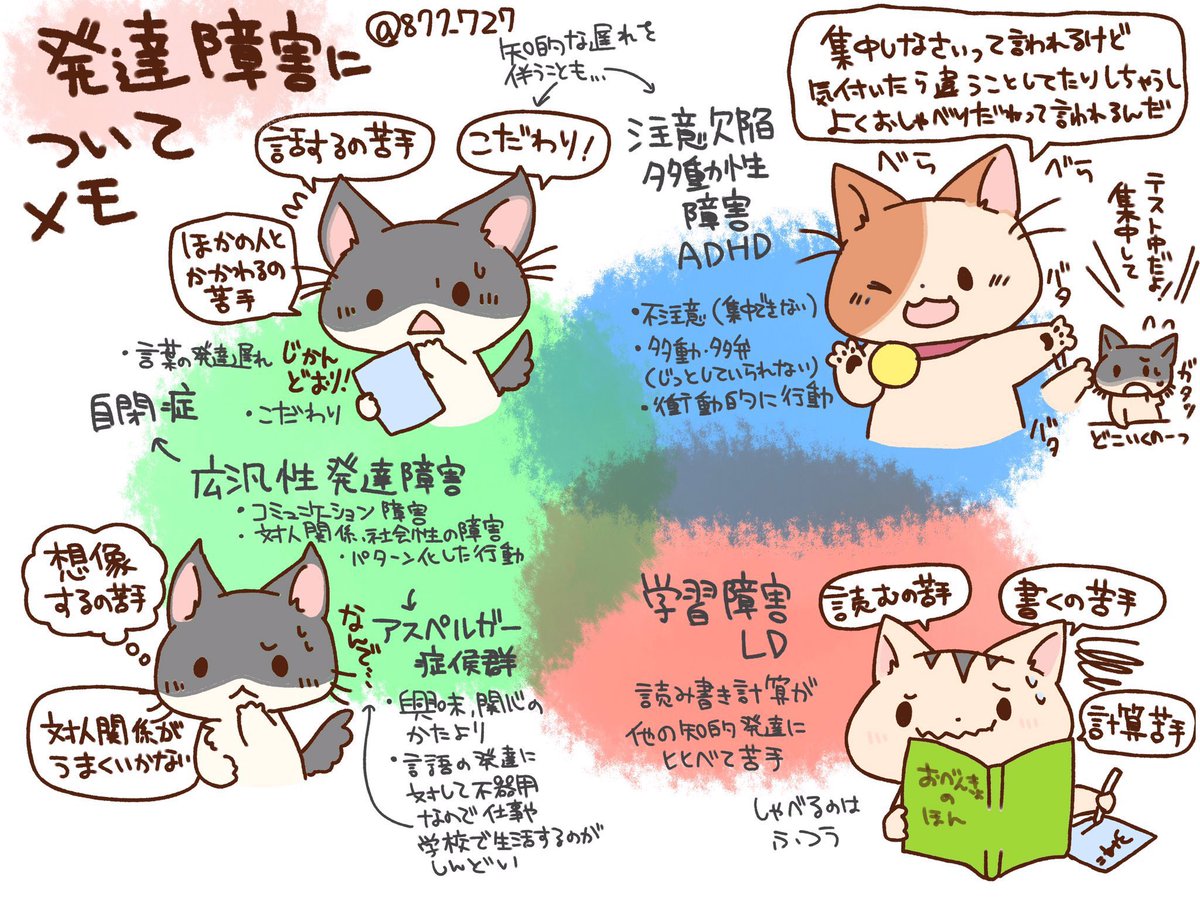 発達障害に
ついて
メモ
@877_727
知的な遅れを
伴うことも…
話するの苦手
こだわり!
ほかの人と
かかわるの
苦手
じかん
どおり!
・言葉の発達遅れ
・こだわり
自閉症
広汎性発達障害
・コミュニケーション障害
・対人関係、社会性の障害
・パターン化した行動
想像
するの苦手
なんで…
対人関係が
うまくいかない
アスペルガー
症候群
・興味、関心の
かたより
・言語の発達に
対して不器用
なので仕事や
学校で生活するのが
しんどい
集中しなさいって言われるけど
気付いたら違うことしてたりしちゃうし
よくおしゃべりだねって言われるんだ
べら
べら
注意欠陥
多動性
障害
ADHD
・不注意(集中できない)
・多動・多弁
(じっとしていられない)
・衝動的に行動
バタ
バタ
テスト中だよ!
集中して
ガタッ
どこいくのーっ
学習障害
LD
読み書き計算が
他の知的発達に
とくべて苦手
しゃべるのは
ふつう
読むの苦手
書くの苦手
計算苦手
おべんきょ
の
ほん